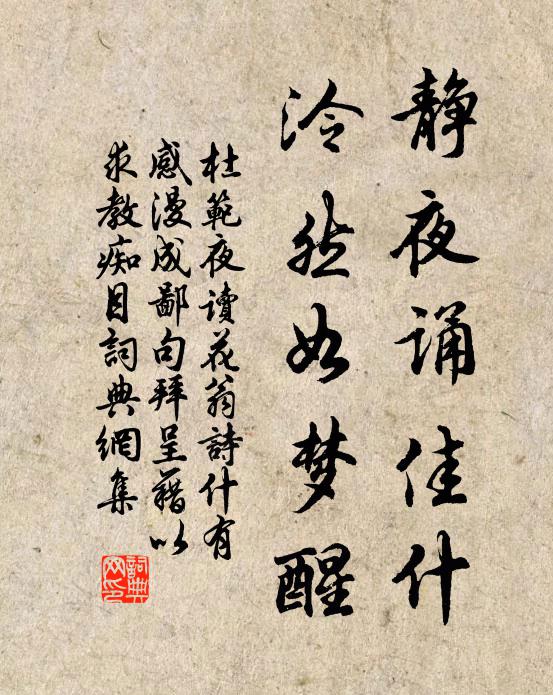 静夜诵佳什
泠然如梦醒
杜範夜讀花翁詩什有
感漫成鄙句拜呈藉以
求教痴目詞典網集
詞典
网印